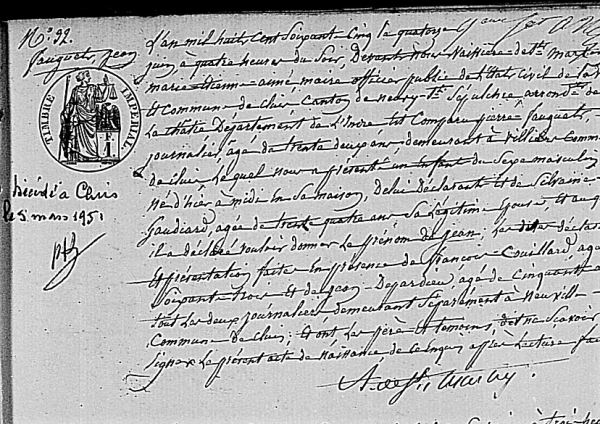 N° 92.
fauguet, Jean
TIMBRE IMPERIAL
F.
1
Décédé à Cluis
le 5 mars 1951
L'an mil huit cent Soixant Cinq le quatorze
juin, à quatre heures du Soir, Devant nous
marie Etienne aimé, maire officier public de l'Etat Civil de la
et Commune de Cluis Canton de neuvy St Sépulchre arrond.
La châtre Département de L'Indre est Comparu pierre fauguet,
journalier, âgé de trente deux ans demeurant à villiers Commune
de Cluis Lequel nous a présenté un Enfant du Sexe masculin
né d'hier à midi en Sa maison, de lui déclarant et de Silvaine
Gaudiard, agée de trente quatre ans Sa Légitime Epouse et auquel
il a déclaré vouloir donner Le prénom de Jean; Les dites
et présentation faites En présence de françois Couillard, agé
Soixante trois et de Jean Dejardieu, agé de Cinquante
tous Les deux journaliers demeurant Séparément à
Commune de Cluis; et ont, Les père et Temoins, dit ne Scavoir
signer Le présent acte de naissance de Ce Enquis après Lecture